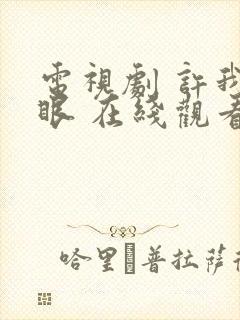 電視劇 許我
眼 在綫觀看
哈里 普拉薩